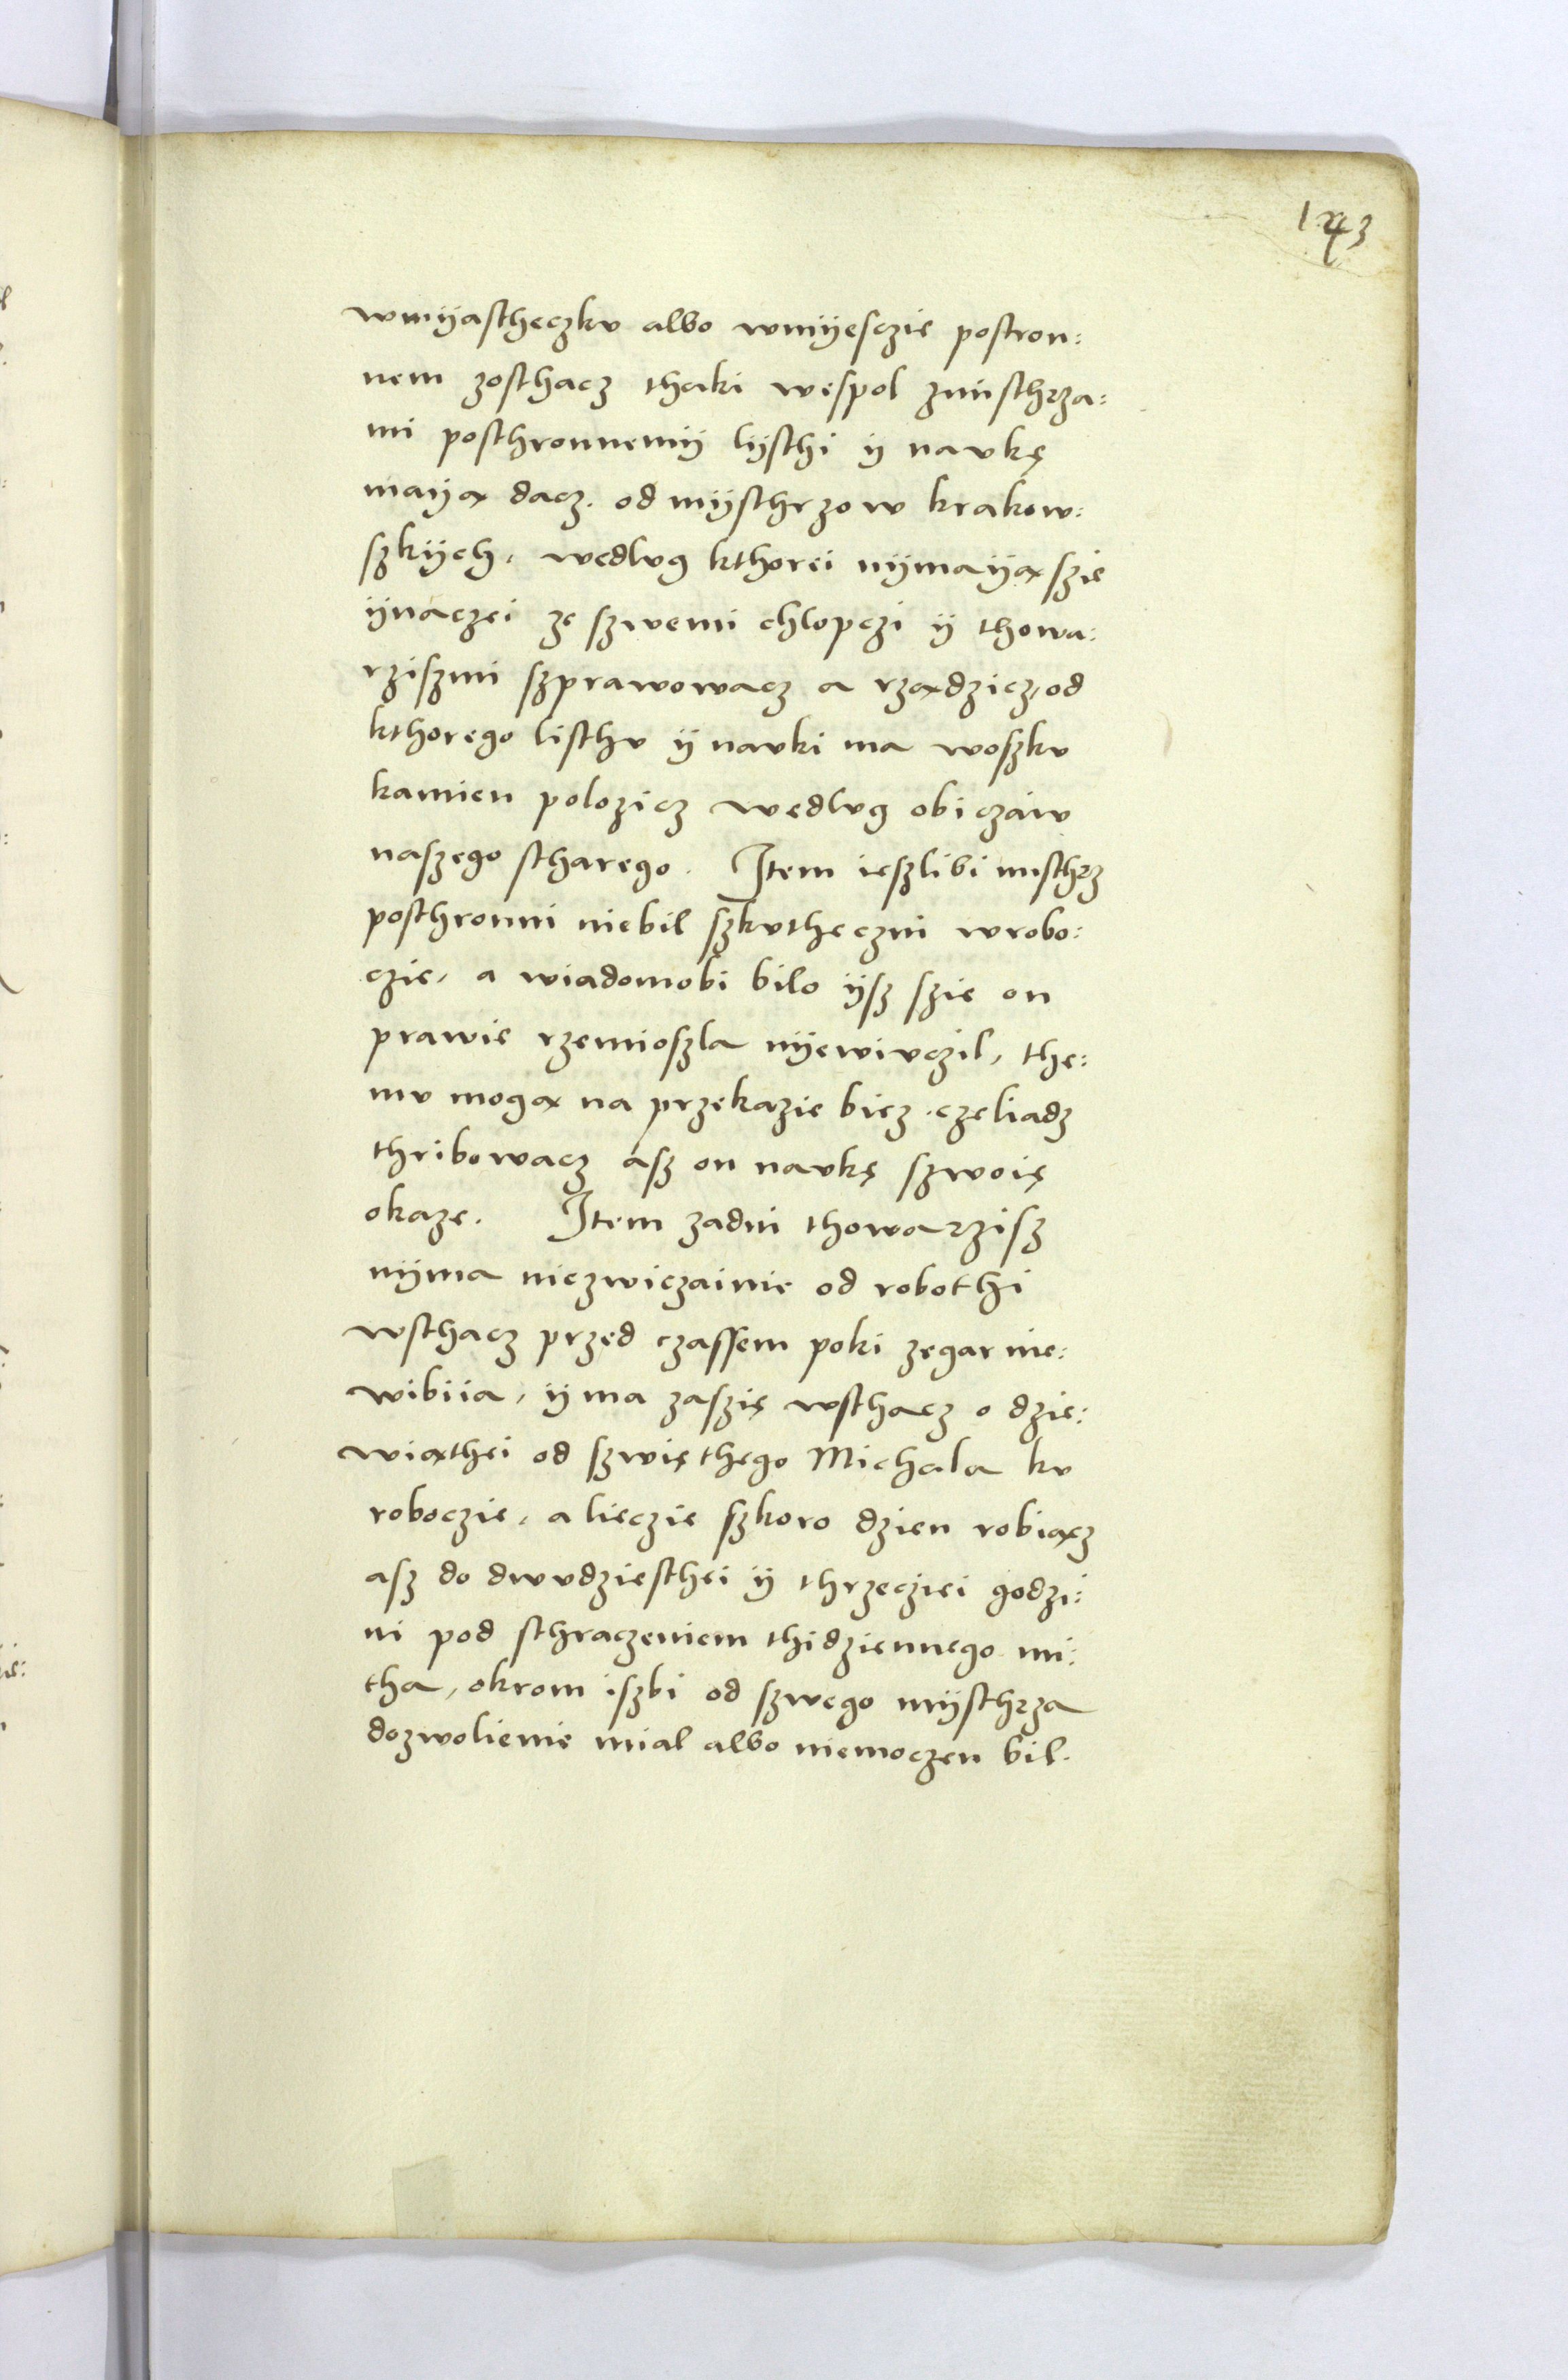 143
wmÿastheczkv albo wmÿesczie postron:
nem zosthacz thaki wespol zmisthrza:
mi posthronnemÿ lÿsthi ÿ navkę
maÿą dacz. od mÿsthrzow krakow:
szkÿch, wedlvg kthorei nÿmaÿą szie
ÿnaczei ze szwemi chlopczi ÿ thowa:
rziszmi szprawowacz a rządzicz, od
kthorego listhv ÿ navki ma woszkv
kamien polozicz wedlvg obiczaiv
naszego stharego. Item ieszlibi misthrz
posthronni niebil szkvtheczni wrobo:
czie, a wiadomobi bilo ÿsz szie on
prawie rzemioszla nÿewivczil, the:
mv mogą na przekazie bicz. czeliadz
thribowacz asz on navkę szwoię
okaze. Item zadni thowarzisz
nÿma niezwiczainie od robothi
wsthacz przed czassem poki zegar nie:
wibiia, ÿ ma zaszię wsthacz o dzie:
wiąthei od szwięthego Michala kv
roboczie, a lieczie szkoro dzien robiącz
asz do dwvdziesthei ÿ thrzecziei godzi:
ni pod sthraczeniem thidziennego mi:
tha, okrom iszbi od szwego mÿsthrza
dozwolienie mial albo niemoczen bil.